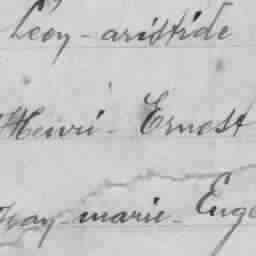 Léon - aristide
Henri - Ernest
marie - Euge